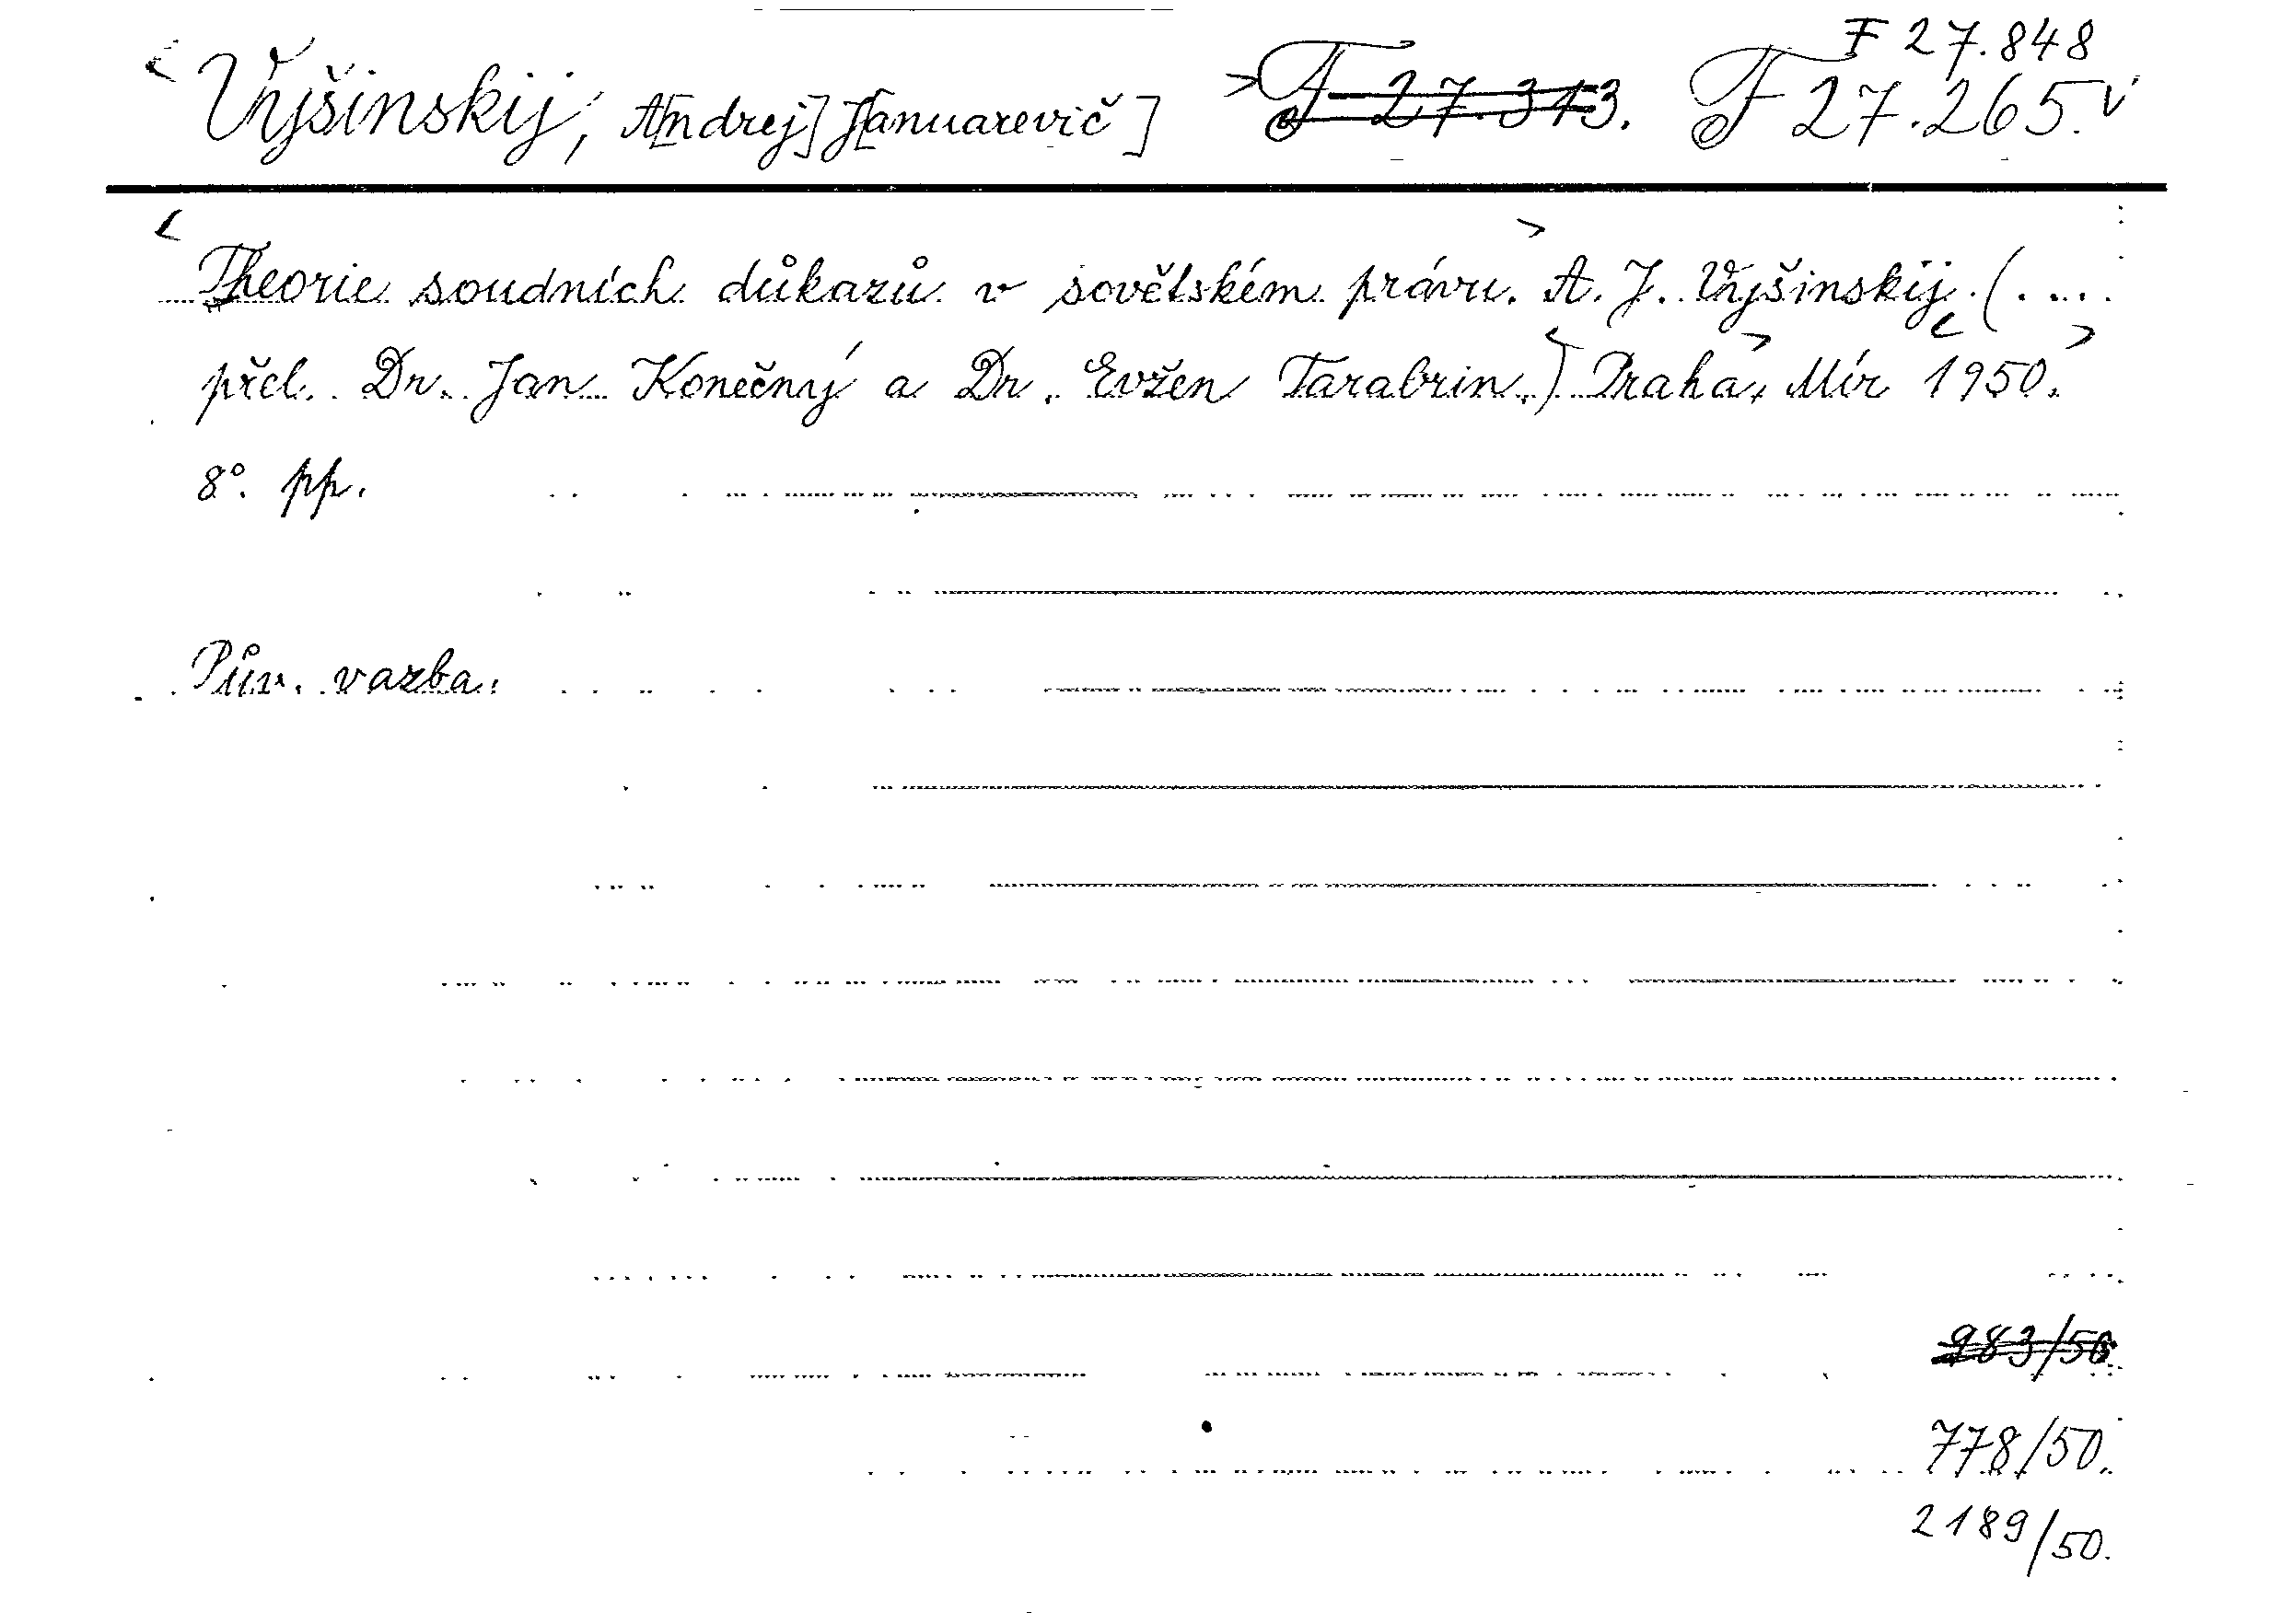 F 27.848
Vyšinskij, A[ndrej] J[anuarevič] F 27.313. F 27.265.
Theorie soudních důkazů v sovětském právu. A. J. Vyšinskij. (....
přel. Dr. Jan Konečný a Dr. Evžen Tarabrin.) Praha, Mír 1950.
8°. pp.
Pův. vazba.
983/50.
778/50.
2189/50.